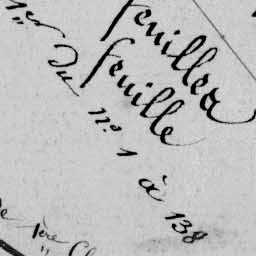 feuilles
feuille
1er du n° 1 à 138
de 1ère Cl